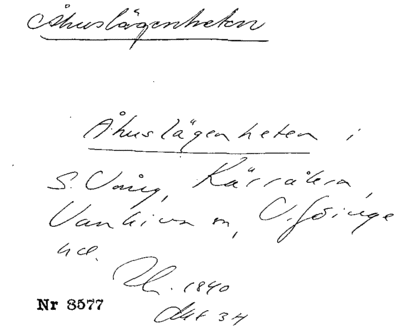 Åhuslägenheten
Åhuslägenheten i
S. Vång, Kärråkra,
Vankiva sn, V. Göinge
hd.
1840
Akt 34
Nr 8577